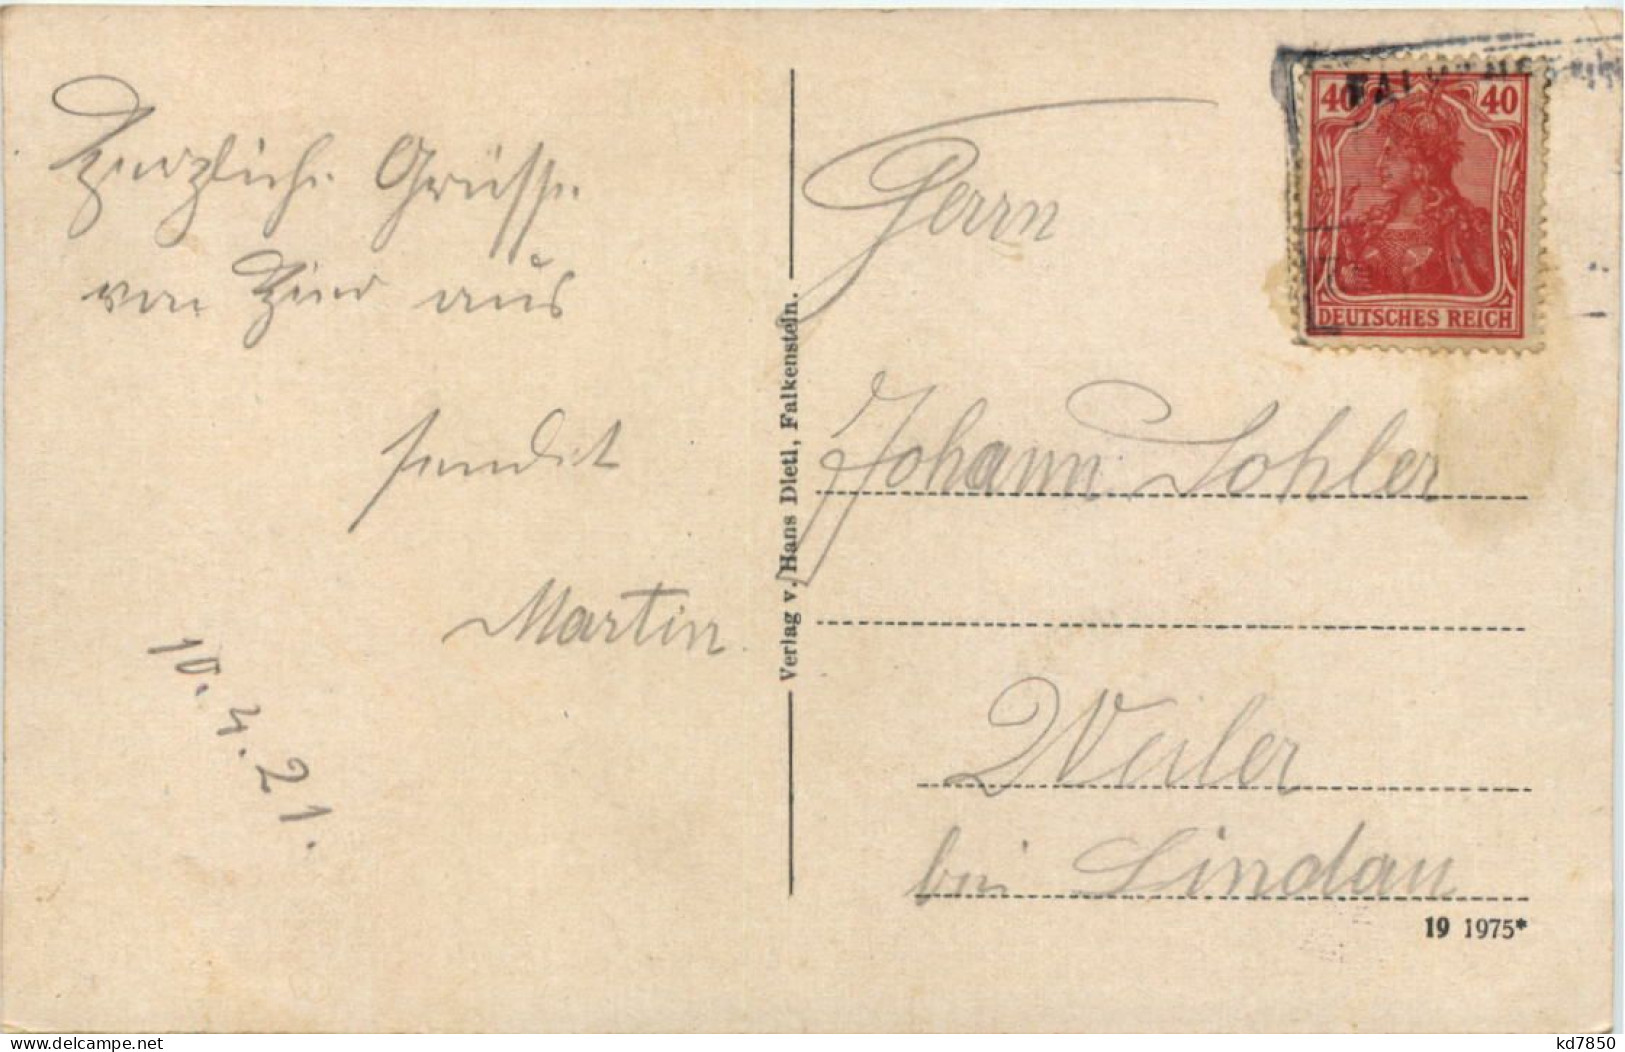 Herzliche Grüsse
von hier aus
sendet
Martin.
10.4.21.
Verlag v. Hans Dietl, Falkenstein.
Herrn
Johann Sohler
Weiler
bei Lindau
40 40
DEUTSCHES REICH
19 1975*
delcampe.net kd7850